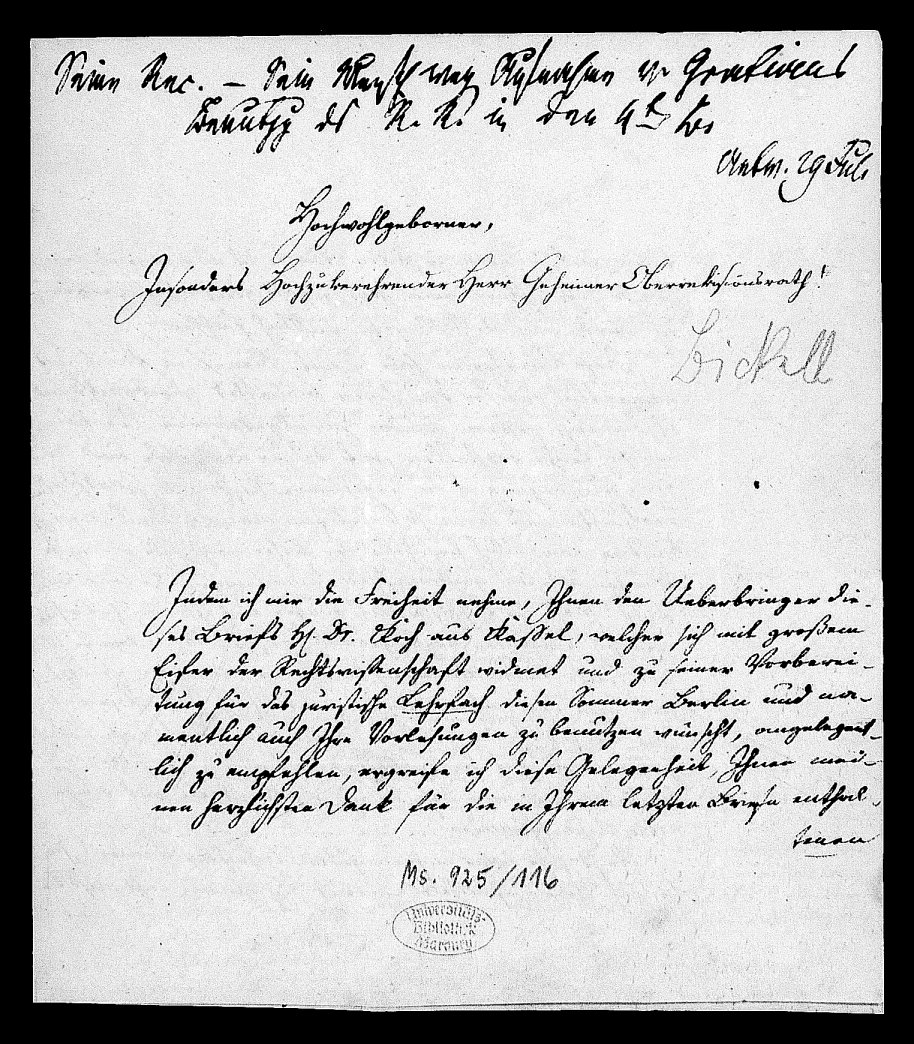 Seine Rec. – Sein Wunsch weg. Aufnahme v. Gratians
Benutzg ds R. R. in den 4t Bd
Antw. 29 Juli
Hochwohlgeborner,
Insonders Hochzuverehrender Herr Geheimer Oberrevisionsrath!
Bickell
Indem ich mir die Freiheit nehme, Ihnen den Ueberbringer die-
ses Briefs H. Dr. Koch aus Kassel, welcher sich mit großem
Eifer der Rechtswissenschaft widmet und zu seiner Vorberei-
tung für das juristische Lehrfach diesen Sommer Berlin und na-
mentlich auch Ihre Vorlesungen zu benutzen wünscht, angelegent-
lich zu empfehlen, ergreife ich diese Gelegenheit, Ihnen mei-
nen herzlichsten Dank für die in Ihrem letzten Briefe enthal-
tenen
Ms. 925/116
Universitäts-
Bibliothek
Marburg